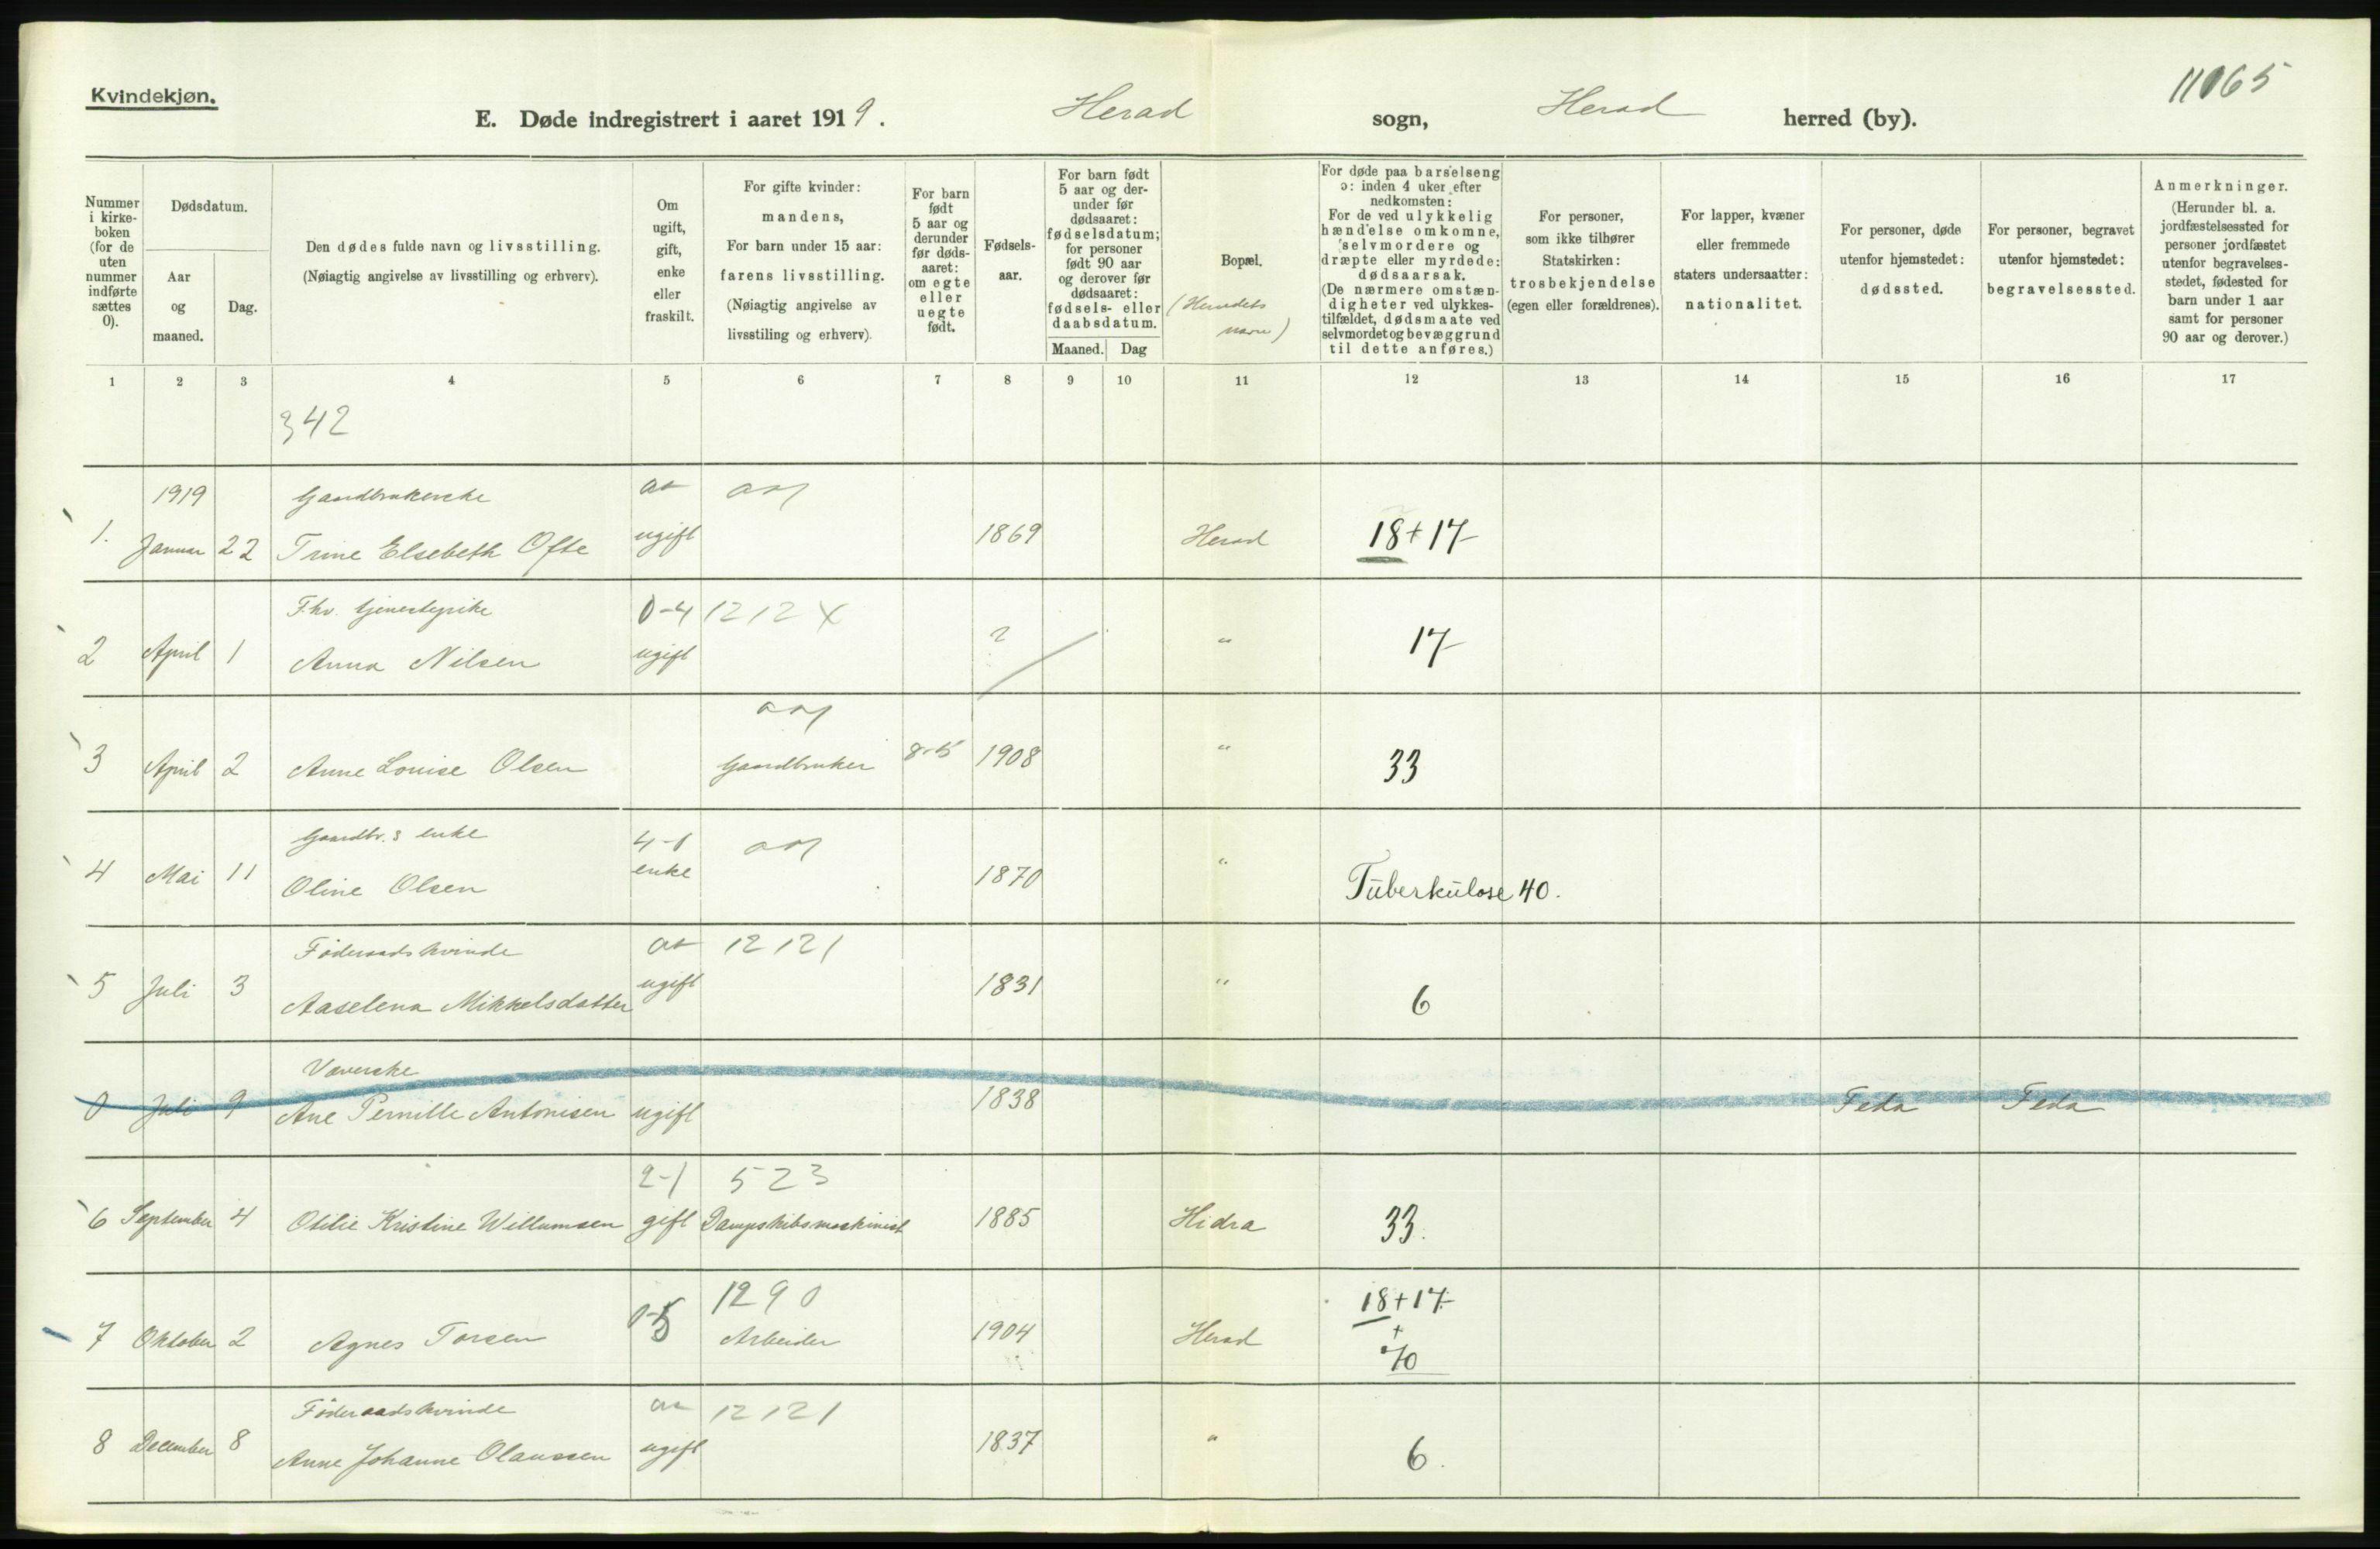 Kvindekjøn.
11065
E. Døde indregistrert i aaret 1919. Herad sogn, Herad herred (by).
Nummer i kirke-boken (for de uten nummer indførte sættes 0).
Dødsdatum.
Aar og maaned.
Dag.
Den dødes fulde navn og livsstilling.
(Nøiagtig angivelse av livsstilling og erhverv).
Om ugift, gift, enke eller fraskilt.
For gifte kvinder: mandens,
For barn under 15 aar: farens livsstilling.
(Nøiagtig angivelse av livsstiling og erhverv).
For barn født 5 aar og derunder før døds-aaret: om egte eller uegte født.
Fødsels-aar.
For barn født 5 aar og der-under før dødsaaret: fødselsdatum; for personer født 90 aar og derover før dødsaaret: fødsels- eller daabsdatum.
Maaned. Dag
Bopæl.
(Herredets navn)
For døde paa barselseng ɔ: inden 4 uker efter nedkomsten:
For de ved ulykkelig hændelse omkomne, selvmordere og dræpte eller myrdede: dødsaarsak.
(De nærmere omstæn-digheter ved ulykkes-tilfældet, dødsmaate ved selvmordet og bevæggrund til dette anføres.)
For personer, som ikke tilhører Statskirken: trosbekjendelse (egen eller forældrenes).
For lapper, kvæner eller fremmede staters undersaatter: nationalitet.
For personer, døde utenfor hjemstedet: dødssted.
For personer, begravet utenfor hjemstedet: begravelsessted.
Anmerkninger.
(Herunder bl. a. jordfæstelsessted for personer jordfæstet utenfor begravelses-stedet, fødested for barn under 1 aar samt for personer 90 aar og derover.)
1 2 3 4 5 6 7 8 9 10 11 12 13 14 15 16 17
342
1919 Gaardbrukerske
1. Januar 22 Trine Elsebeth Ofte ugift 1869 Herad 18+17
F.hv. tjenestepike 0-4 1212 X
2 April 1 Anna Nilsen ugift ? " 17
3 April 2 Anne Louise Olsen Gaardbruker 8-5 1908 " 33
Gaardbr.s enke 4-1
4 Mai 11 Oline Olsen enke 1870 " Tuberkulose 40.
Føderaadskvinde 12121
5 Juli 3 Aaselena Mikkelsdatter ugift 1831 " 6
Væverske
0 Juli 9 Ane Pernille Antonisen ugift 1838 Feda Feda
2-1 523
6 September 4 Otilie Kristine Willumsen gift Dampskibsmaskinist 1885 Hidra 33.
1290 18+17
7 Oktober 2 Agnes Torsen 0-5 Arbeider 1904 Herad + 70
Føderaadskvinde 12121
8 December 8 Anne Johanne Olaussen ugift 1837 " 6.